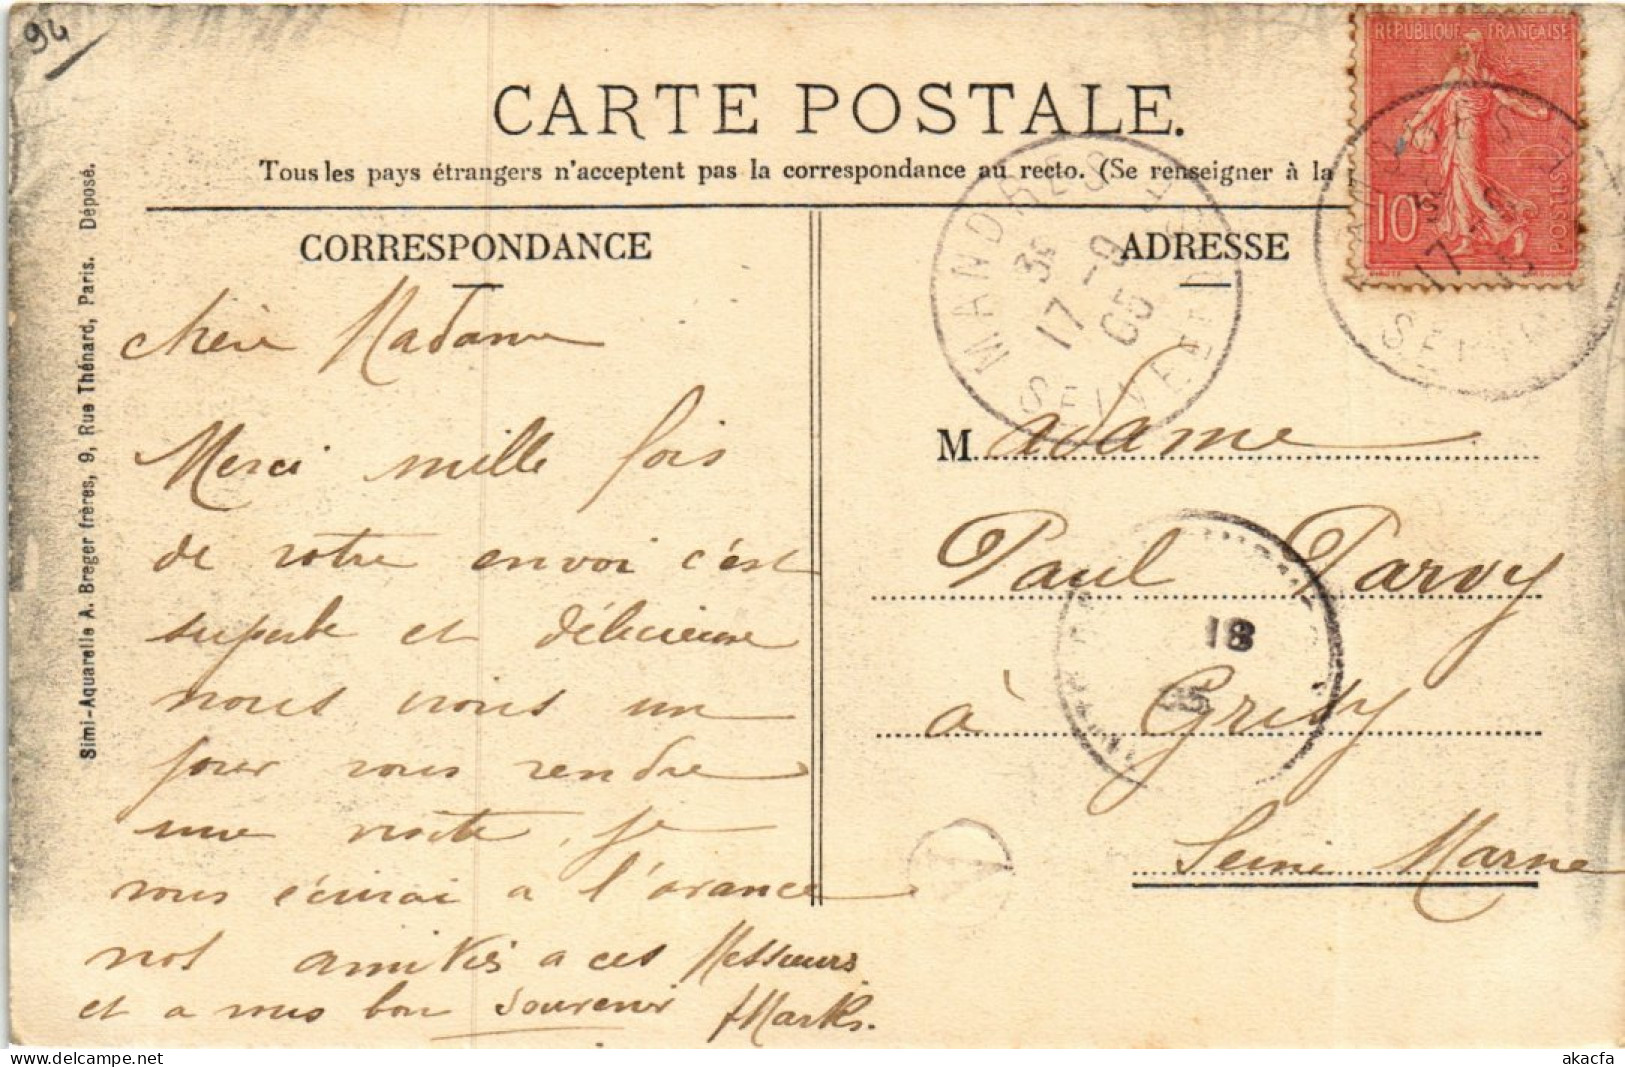 94
CARTE POSTALE.
Tous les pays étrangers n'acceptent pas la correspondance au recto. (Se renseigner à la
RÉPUBLIQUE FRANÇAISE
10
POSTES
MANDRES
SEINE
17 -9
05
CORRESPONDANCE
chère Madame
Merci mille fois
de votre envoi c'est
superbe et délicieuse
nous irons un
jour vous rendre
une visite, je
vous écirai a l'avance
nos amitiés a ces Messieurs
et a vous bon souvenir
ADRESSE
Madame
Paul Parvy
à Grisy
Seine Marne
18
Simi-Aquarelle A. Breger frères, 9, Rue Thénard, Paris. Déposé.
delcampe.net
akacfa